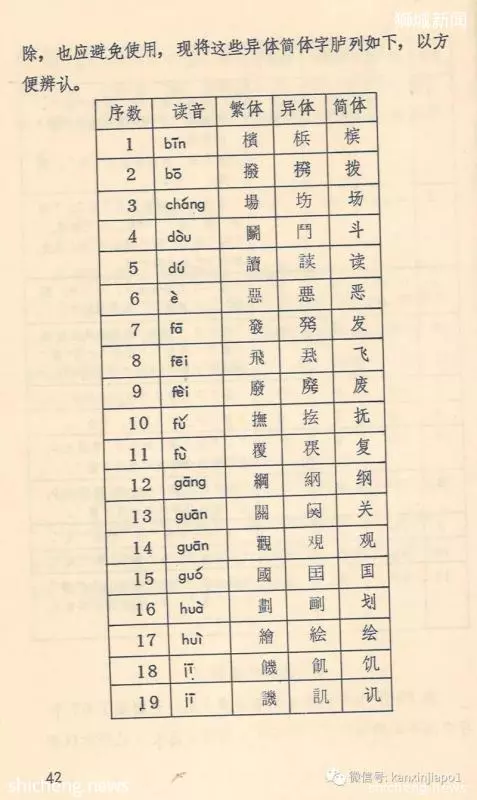 狮城新闻
除，也应避免使用，现将这些异体简体字胪列如下，以方
便辨认。
序数 读音 繁体 异体 简体
1 bīn 檳 梹 槟
2 bō 撥 拨
3 cháng 場 坊 场
4 dòu 鬭 鬥 斗
5 dú 讀 読 读
6 è 惡 悪 恶
7 fā 發 発 发
8 fēi 飛 飞
9 fèi 廢 廃 废
10 fǔ 撫 抚
11 fù 覆 复
12 gāng 綱 纲
13 guān 關 関 关
14 guān 觀 覌 观
15 guó 國 囯 国
16 huà 劃 划
17 huì 繪 絵 绘
18 jī 饑 飢 饥
19 jī 譏 訊 讥
42
shicheng.news
微信号: kanxinjiapo1